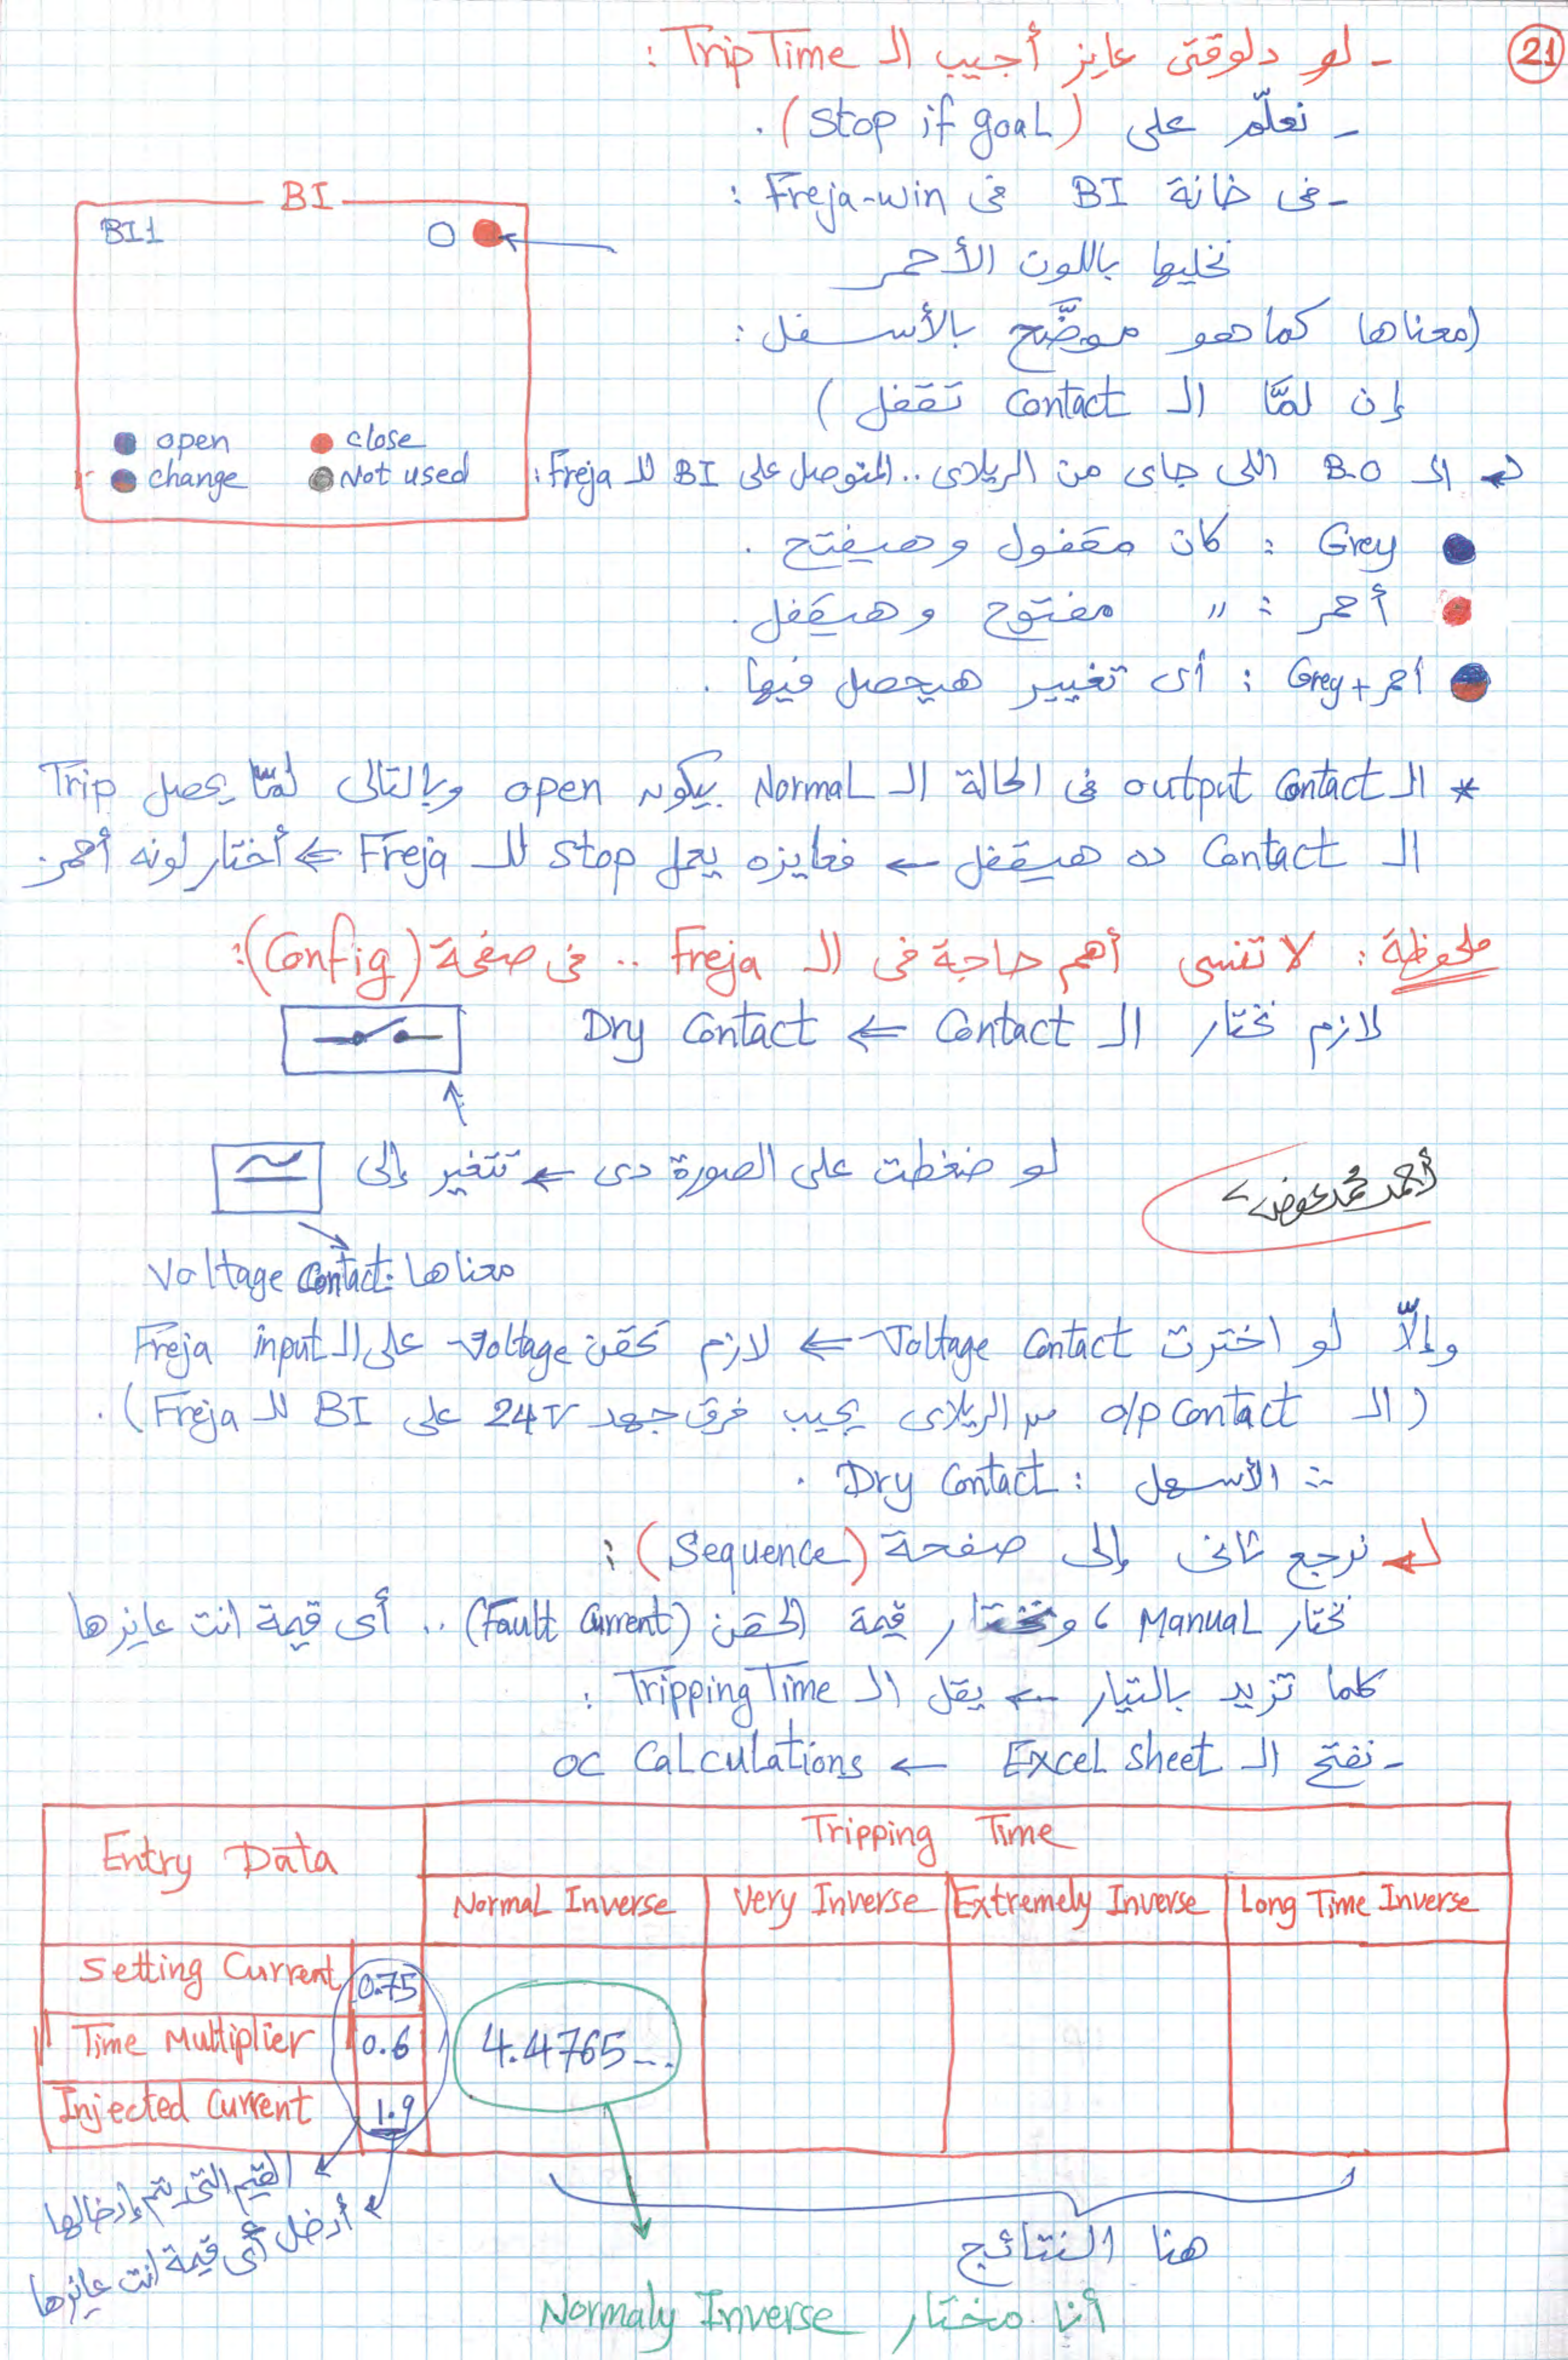 21
- لو دلوقتى عايز أجيب الـ Trip Time :
- نعلّم على (Stop if goal) .
- فى خانة BI فى Freja-win :
نخليها باللون الأحمر
(معناها كما هو موضَّح بالأسفل :
إن لمّا الـ Contact تقفل )
BI
BI1
open
close
change
Not used
الـ B.O اللى جاى من الريلاى .. المتوصل على BI للـ Freja :
Grey : كان مقفول وهيفتح .
أحمر : " مفتوح وهيقفل .
أحمر + Grey : أى تغيير هيحصل فيها .
* الـ output Contact فى الحالة الـ Normal بيكون open وبالتالى لمّا يحصل Trip
الـ Contact ده هيقفل ← فعايزه يعمل Stop للـ Freja ⇐ أختار لونه أحمر .
ملحوظة : لا تنسى أهم حاجة فى الـ Freja .. فى صفحة (Config) :
لازم تختار الـ Contact ⇐ Dry Contact
لو ضغطت على الصورة دى ← تتغير إلى
أحمد محمد عوض
معناها : Voltage Contact
وإلّا لو اخترت Voltage Contact ⇐ لازم تحقن Voltage على الـ Freja input
(الـ o/p Contact من الريلاى يجيب فرق جهد 24V على BI للـ Freja) .
∴ الأسهل : Dry Contact .
نرجع تانى إلى صفحة (Sequence) :
تختار Manual ، وتختار قيمة الحقن (Fault Current) .. أى قيمة انت عايزها
كلما تزيد بالتيار ← يقل الـ Tripping Time :
- نفتح الـ Excel sheet ← OC Calculations
Entry Data
Tripping Time
Normal Inverse
Very Inverse
Extremely Inverse
Long Time Inverse
Setting Current 0.75
Time Multiplier 0.6
4.4765...
Injected Current 1.9
القيم التى يتم إدخالها
أدخل أى قيمة انت عايزها
هنا النتائج
أنا مختار Normaly Inverse